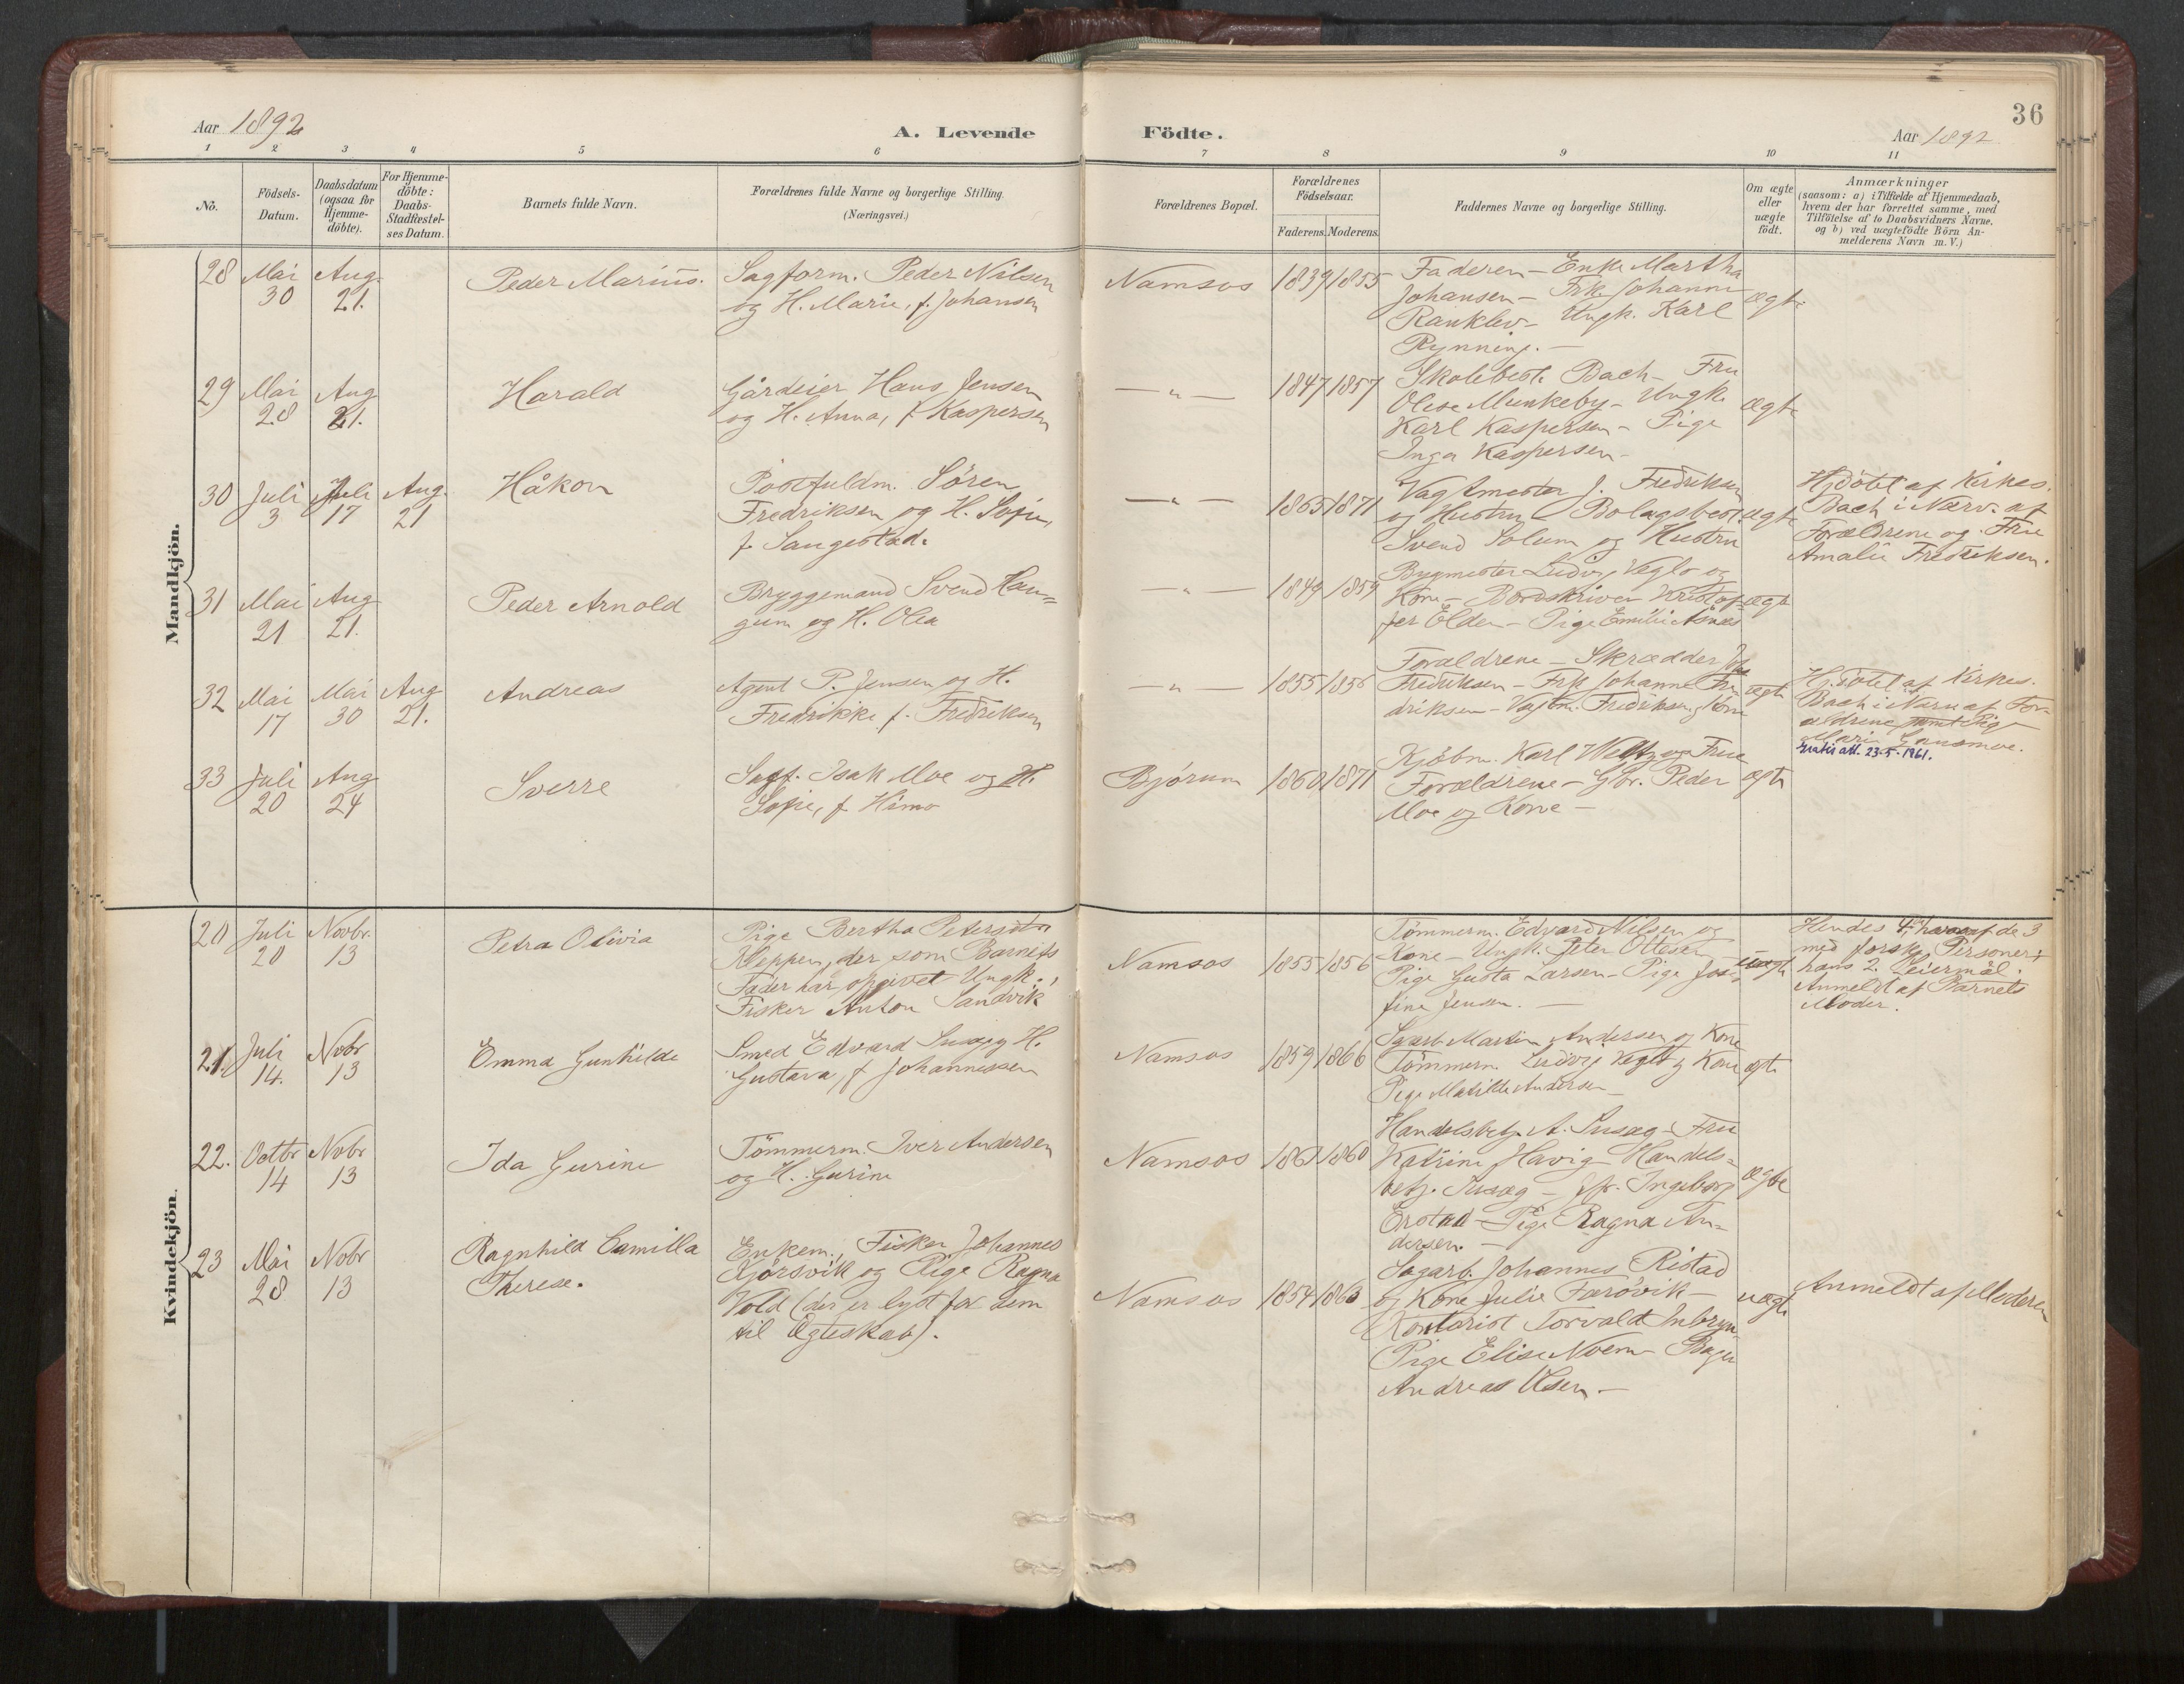 36
Aar 1892
A. Levende
Födte.
Aar 1892
1 2 3 4 5 6 7 8 9 10 11
No.
Födsels-
Datum.
Daabsdatum
(ogsaa for
Hjemme-
döbte).
For Hjemme-
döbte:
Daabs-
Stadfæstel-
ses Datum.
Barnets fulde Navn.
Forældrenes fulde Navne og borgerlige Stilling.
(Næringsvei.)
Forældrenes Bopæl.
Forældrenes
Födselsaar.
Faderens. Moderens.
Faddernes Navne og borgerlige Stilling.
Om ægte
eller
uægte
födt.
Anmærkninger
(saasom: a) i Tilfælde af Hjemmedaab,
hvem der har forrettet samme, med
Tilföielse af to Daabsvidners Navne.
og b) ved uægtefödte Börn An-
melderens Navn m. V.)
Mandkjön.
28
Mai
30
Aug.
21.
Peder Marius.
Sagform. Peder Nilsen
og H. Marie, f. Johansen
Namsos
1839 1855
Faderen - Enke Martha
Johansen - Frk. Johanne
Ranklev - Ungk. Karl
Rynning. -
ægte
29
Mai
28
Aug
21.
Harald
Gårdeier Hans Jensen
og H. Anna, f. Kaspersen
— " —
1847 1857
Skolebest. Bach - Fru
Munkeby - Ungk.
Karl Kaspersen - Pige
Inga Kaspersen -
ægte
30
Juli
3
Juli
17
Aug.
21
Håkon
Postfuldm. Sören
Fredriksen og H. Sofie,
f. Saugestad.
— " —
1865 1871
Vagtmester J. Fredriksen
og Hustru - Bolagsbest.
Svend Solum og Hustru
ægte
Hjdöbt af Kirkes.
Bach i Nærv. af
Forældrene og Fru
Amalie Fredriksen.
31
Mai
21
Aug
21.
Peder Arnold
Bryggemand Svend Hau=
gum og H. Olea
— " —
1849 1859
Bygmester Ludvig Vagle og
Kone - Bordskriver Kristof=
fer Elden - Pige Emilie Asnes
ægte
32
Mai
17
Mai
30
Aug
21.
Andreas
Agent P. Jensen og H.
Fredrikke f. Fredriksen
— " —
1855 1856
Forældrene - Skrædder
Fredriksen - Frk Johanne Fre
driksen - Vagtm. Fredriksen og Kone
ægte
Hjdöbt af Kirkes.
Bach i Nærv af For=
ældrene samt Pige
Marie
Gratis att. 23.5.1961.
33
Juli
20
Aug
24
Sverre
Sagf. Isak Moe og H.
Sofie, f. Himo
Bjórum
1860 1871
Kjöbm. Karl Weltz og Frue
Forældrene - Gbr. Peder
Moe og Kone -
ægte
Kvindekjön.
20
Juli
20
Novbr.
13
Petra Olivia
Pige Bertha Petersdtr
Kleppen, der som Barnets
Fader har opgivet Ungk.,
Fisker Anton Sandvik
Namsos
1855 1856
Tömmerm. Edvard Nilsen og
Kone - Ungk. Peter Ottesen -
Pige Gusta Larsen - Pige Jose=
fine Jensen. -
uægte
Hendes 4., hvoraf de 3
med forskj. Personer;
hans 2. Leiermål.
Anmeldt af Barnets
Moder.
21.
Juli
14.
Nobr
13
Emma Gunhilde
Smed Edvard Susæg og H.
Gustava, f. Johannessen
Namsos
1859 1866
Sgarb. Martin Andersen og Kone
Tömmerm. Ludvig Vagle og Kone
Pige Matilde Andersen -
ægte
22.
Octbr
14
Nobr
13
Ida Gurine
Tömmerm. Iver Andersen
og H. Gurine
Namsos
1861 1860
Handelsbetj. A. Susæg - Fru
Katrine Havig - Handels=
betj. Susæg - Jfr. Ingeborg
Erstad - Pige Ragna An=
dersen. -
ægte
23
Mai
28
Nobr
13
Ragnhild Camilla
Therese.
Enkem., Fisker Johannes
Kjörsvik og Pige Ragna
Vold (der er lyst for dem
til Ægteskab).
Namsos
1854 1863
Sagarb. Johannes Ristad
og Kone Julie Farövik -
Kontorist Torvald Inbryn
Pige Elise Noem - Bager
Andreas Olsen -
uægte
Anmeldt af Moderen